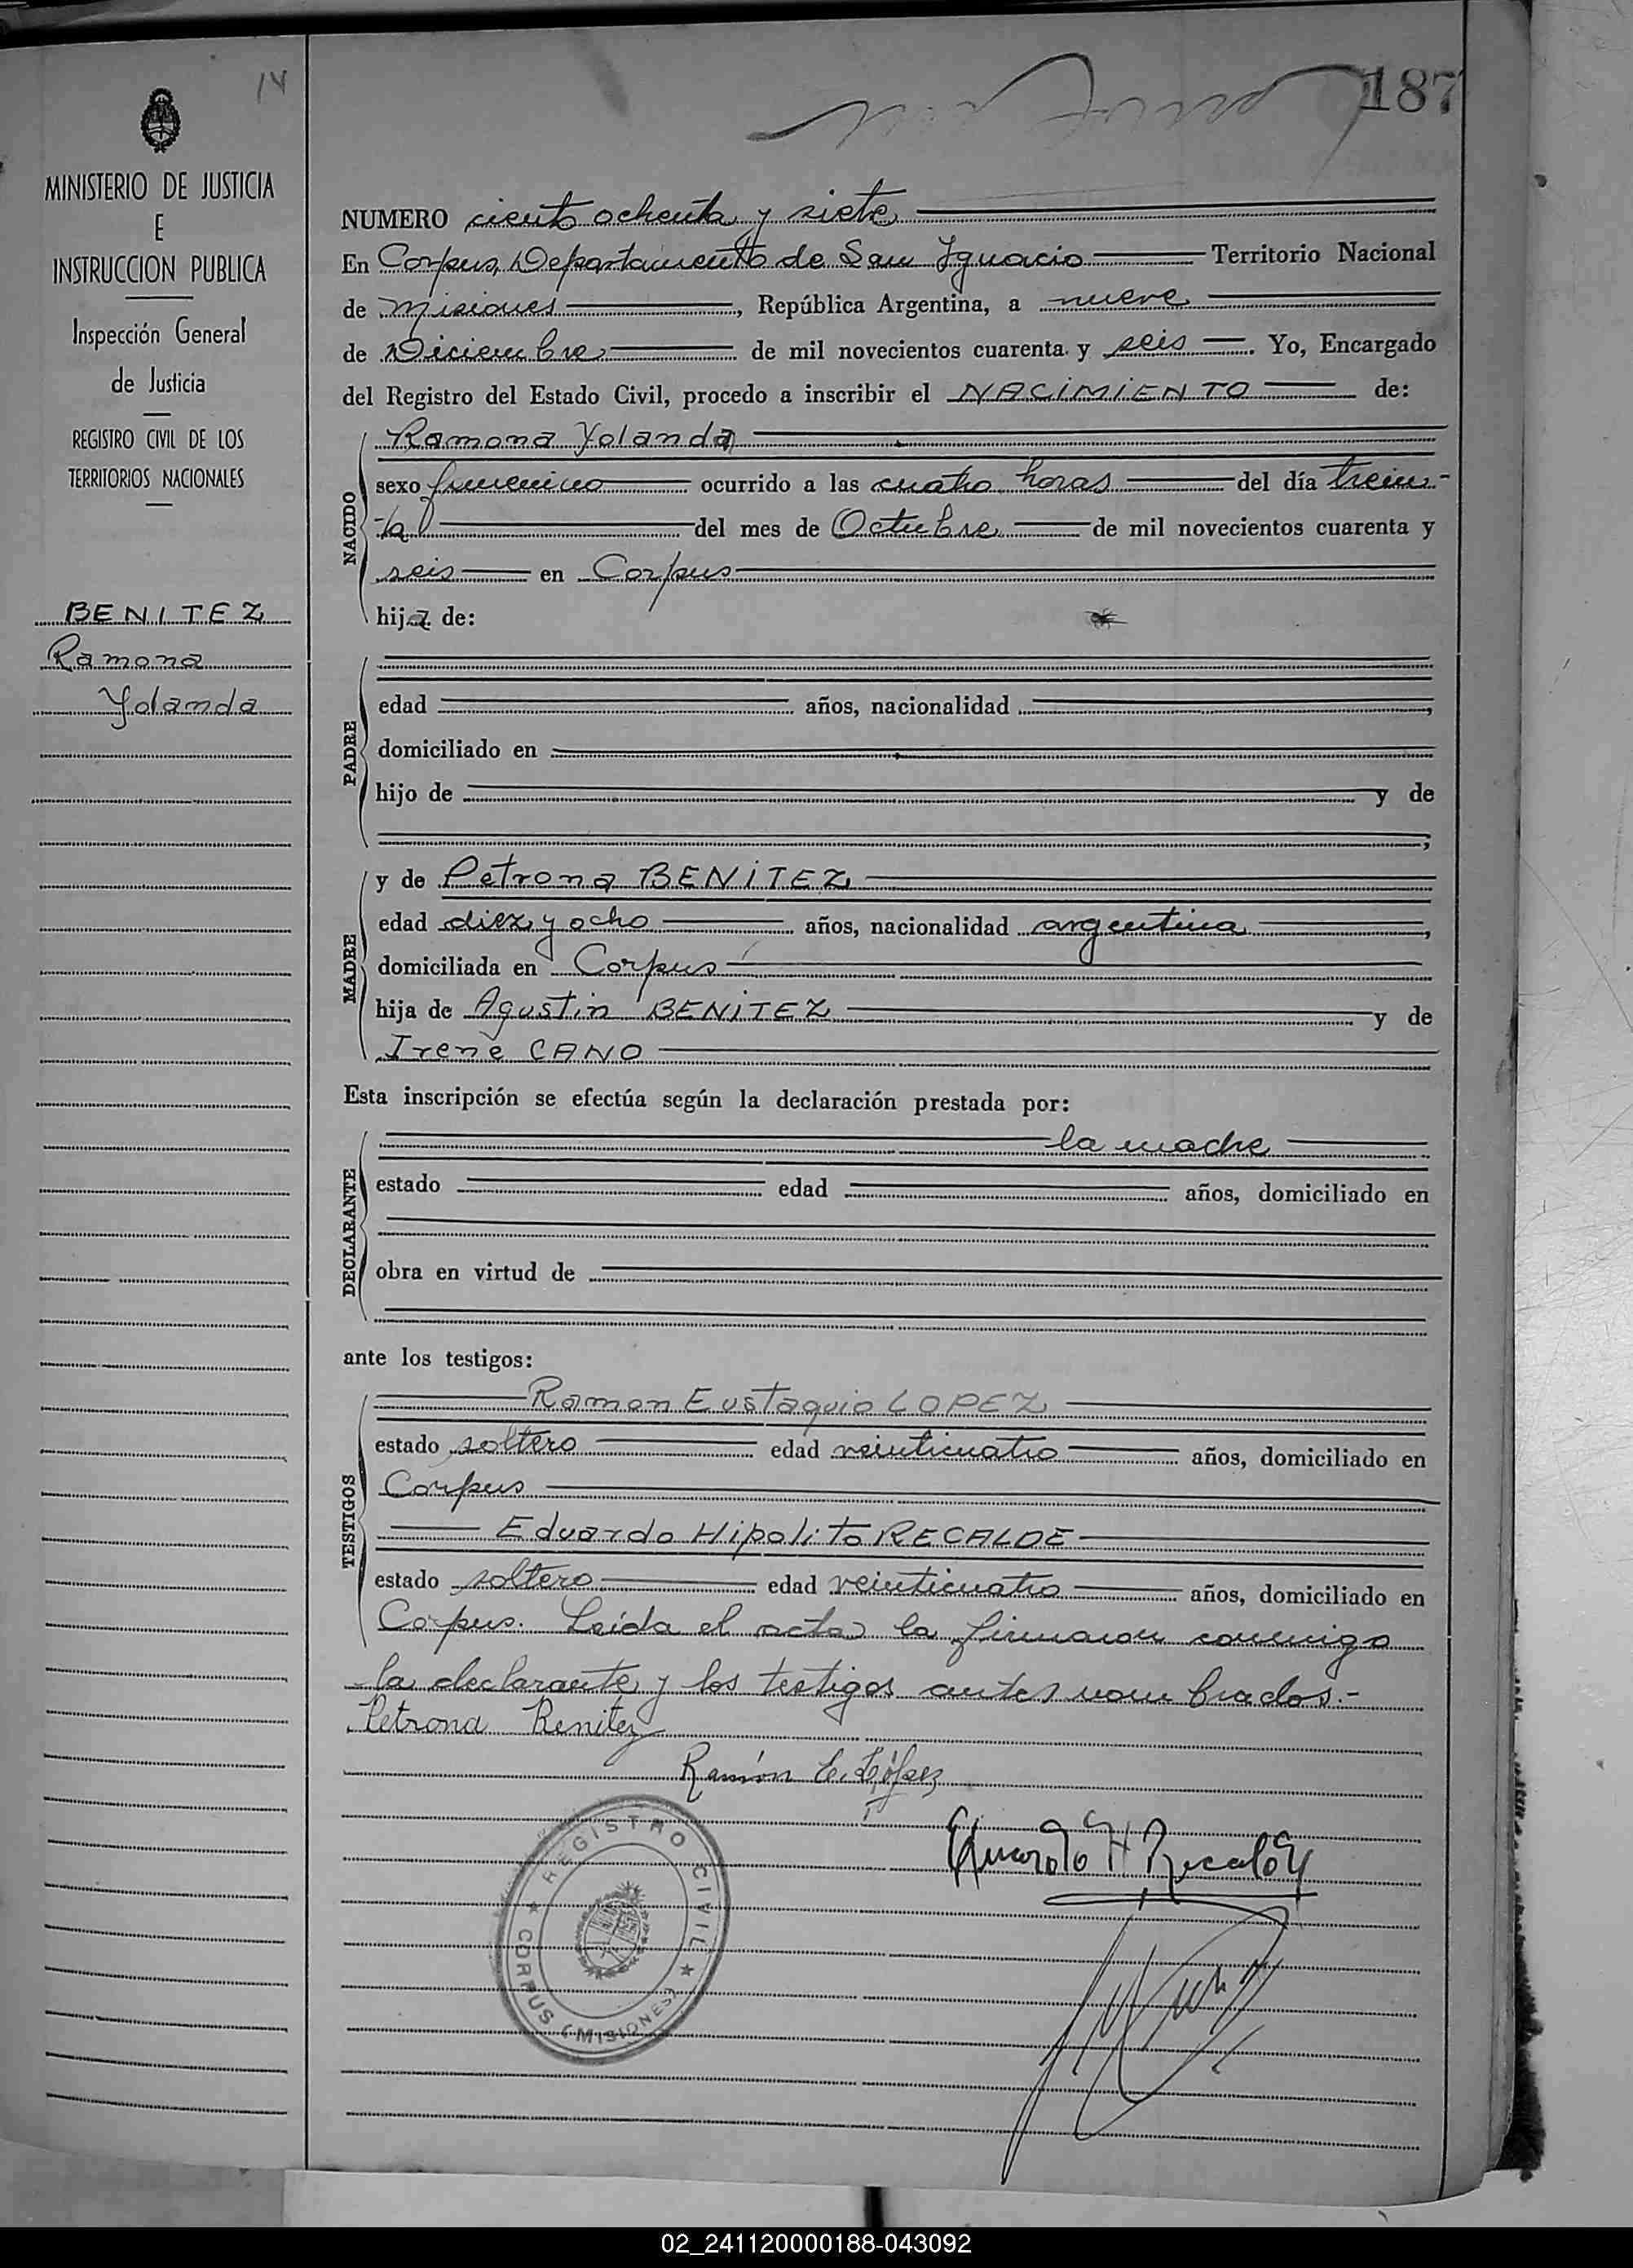 14
187
MINISTERIO DE JUSTICIA
E
INSTRUCCION PUBLICA
Inspección General
de Justicia
REGISTRO CIVIL DE LOS
TERRITORIOS NACIONALES
BENITEZ
Ramona
Yolanda
NUMERO ciento ochenta y siete
En Corpus, Departamento de San Ignacio Territorio Nacional
de Misiones, República Argentina, a nueve
de Diciembre de mil novecientos cuarenta y seis. Yo, Encargado
del Registro del Estado Civil, procedo a inscribir el NACIMIENTO de:
NACIDO
Ramona Yolanda
sexo femenino ocurrido a las cuatro horas del día trein-
ta del mes de Octubre de mil novecientos cuarenta y
seis en Corpus
hija de:
PADRE
edad años, nacionalidad ,
domiciliado en
hijo de y de
;
MADRE
y de Petrona BENITEZ
edad diez y ocho años, nacionalidad argentina,
domiciliada en Corpus
hija de Agustin BENITEZ y de
Irene CANO
Esta inscripción se efectúa según la declaración prestada por:
DECLARANTE
la madre
estado edad años, domiciliado en
obra en virtud de
ante los testigos:
TESTIGOS
Ramon Eustaquio LOPEZ
estado soltero edad veinticuatro años, domiciliado en
Corpus
Eduardo Hipolito RECALDE
estado soltero edad veinticuatro años, domiciliado en
Corpus. Leída el acta la firmaron conmigo
la declarante y los testigos antes nombrados.-
Petrona Benitez
Ramón E. López
Eduardo H Recalde
REGISTRO CIVIL
CORPUS (MISIONES)
02_241120000188-043092